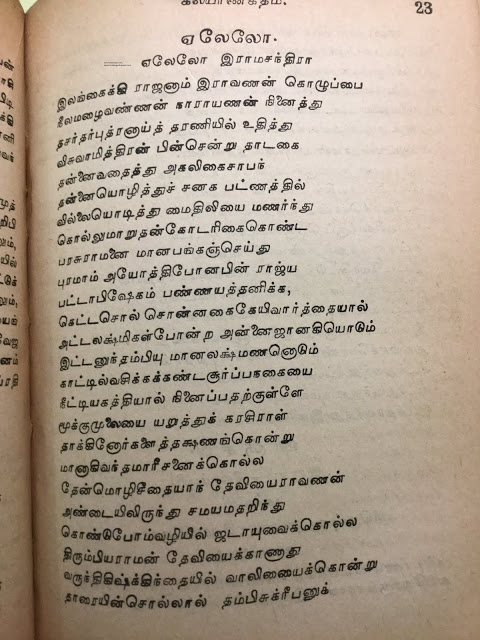 கல்யாணகீதம்.
23
ஏலேலோ.
ஏலேலோ இராமசந்திரா
இலங்கைக்கி ராஜனாம் இராவணன் கொழுப்பை
நீலமழைவண்ணன் நாராயணன் நினைத்து
தசர்தர்புத்ரனாய்த் தரணியில் உதித்து
விசுவாமித்திரன் பின்சென்று தாடகை
தன்னைவதைத்து அகலிகைசாபந்
தன்னையொழித்துச் சனக பட்ணத்தில்
வில்லையொடித்து மைதிலியை மணர்ந்து
கொல்லுமாறுதன்கோடரிகைகொண்ட
பரசுராமனை மானபங்கஞ்செய்து
புரமாம் அயோத்திபோனபின் ராஜ்ய
பட்டாபிஷேகம் பண்ணயத்தனிக்க,
கெட்டசொல் சொன்னகைகேயிவார்த்தையால்
அட்டலக்ஷ்மிகள்போன்ற அன்னைஜானகியொடும்
இட்டனுந்தம்பியு மானலக்ஷ்மணனொடும்
காட்டில்வசிக்கக்கண்டசூர்ப்பநகையை
நீட்டியகத்தியால் நினைப்பதற்குள்ளே
மூக்குமுலையை யறுத்துக் கரசிராள்
தாக்கினோர்களைத்தக்ஷணங்கொன்று
மானாகிவந்தமாரீசனைக்கொல்ல
தேன்மொழிசீதையாந் தேவியைராவணன்
அண்டையிலிருந்து சமயமதறிந்து
கொண்டுபோம்வழியில் ஜடாயுவைக்கொல்ல
திரும்பியராமன் தேவியைக்காணாது
வருந்திகிஷ்க்கிந்தையில் வாலியைக்கொன்று
தாரையின்சொல்லால் தம்பிசுக்ரீபனுக்